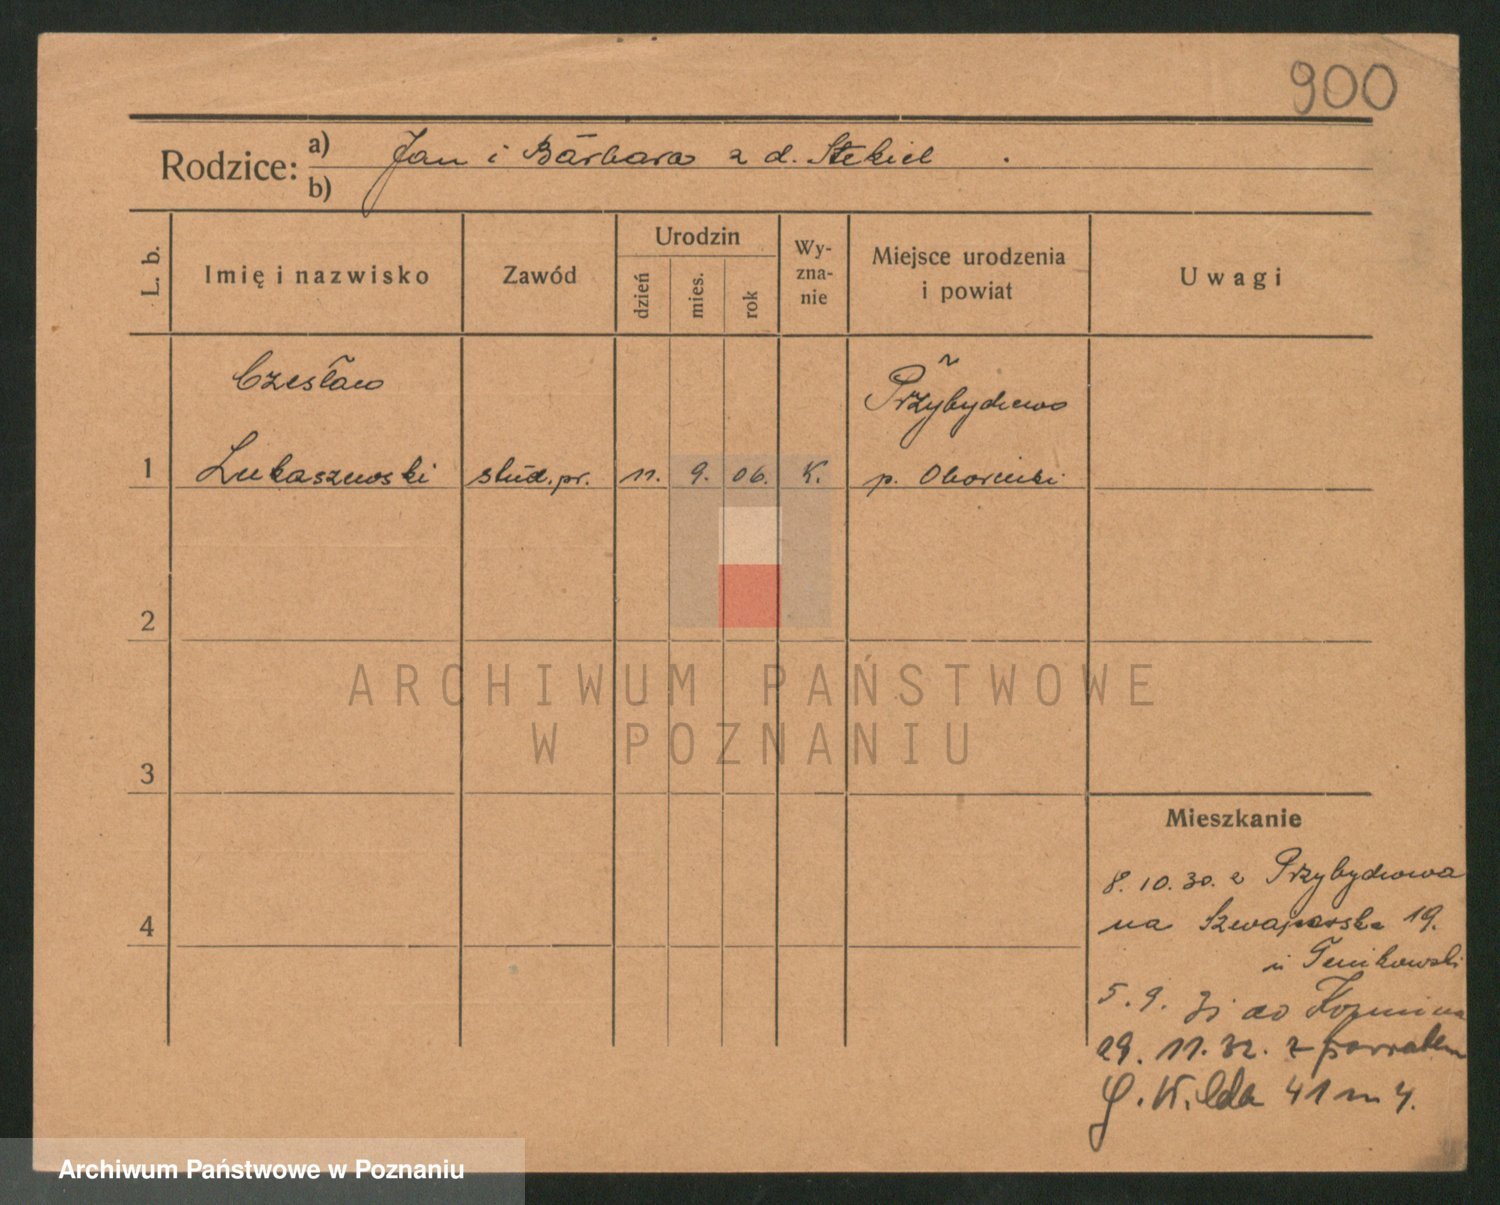 900
Rodzice: a) Jan i Barbara z d. Stekiel
b)
L. b.
Imię i nazwisko
Zawód
Urodzin
dzień
mies.
rok
Wy-
zna-
nie
Miejsce urodzenia
i powiat
Uwagi
Czesław
Przybychowo
1 Łukaszewski stud. pr. 11. 9. 06. K. p. Obornicki
2
ARCHIWUM PAŃSTWOWE
W POZNANIU
3
Mieszkanie
4
8.10.30. z Przybychowa
na Szwajcarska 19.
u
5.9. 31 do Koźmina
29. 11. 32. z powrotem
G. Wilda 41 m 4.
Archiwum Państwowe w Poznaniu